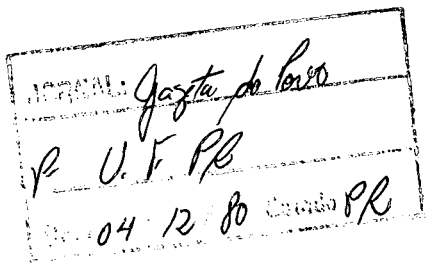 JORNAL: Gazeta do Povo
P- U. F. PR
04 12 80 Estado PR